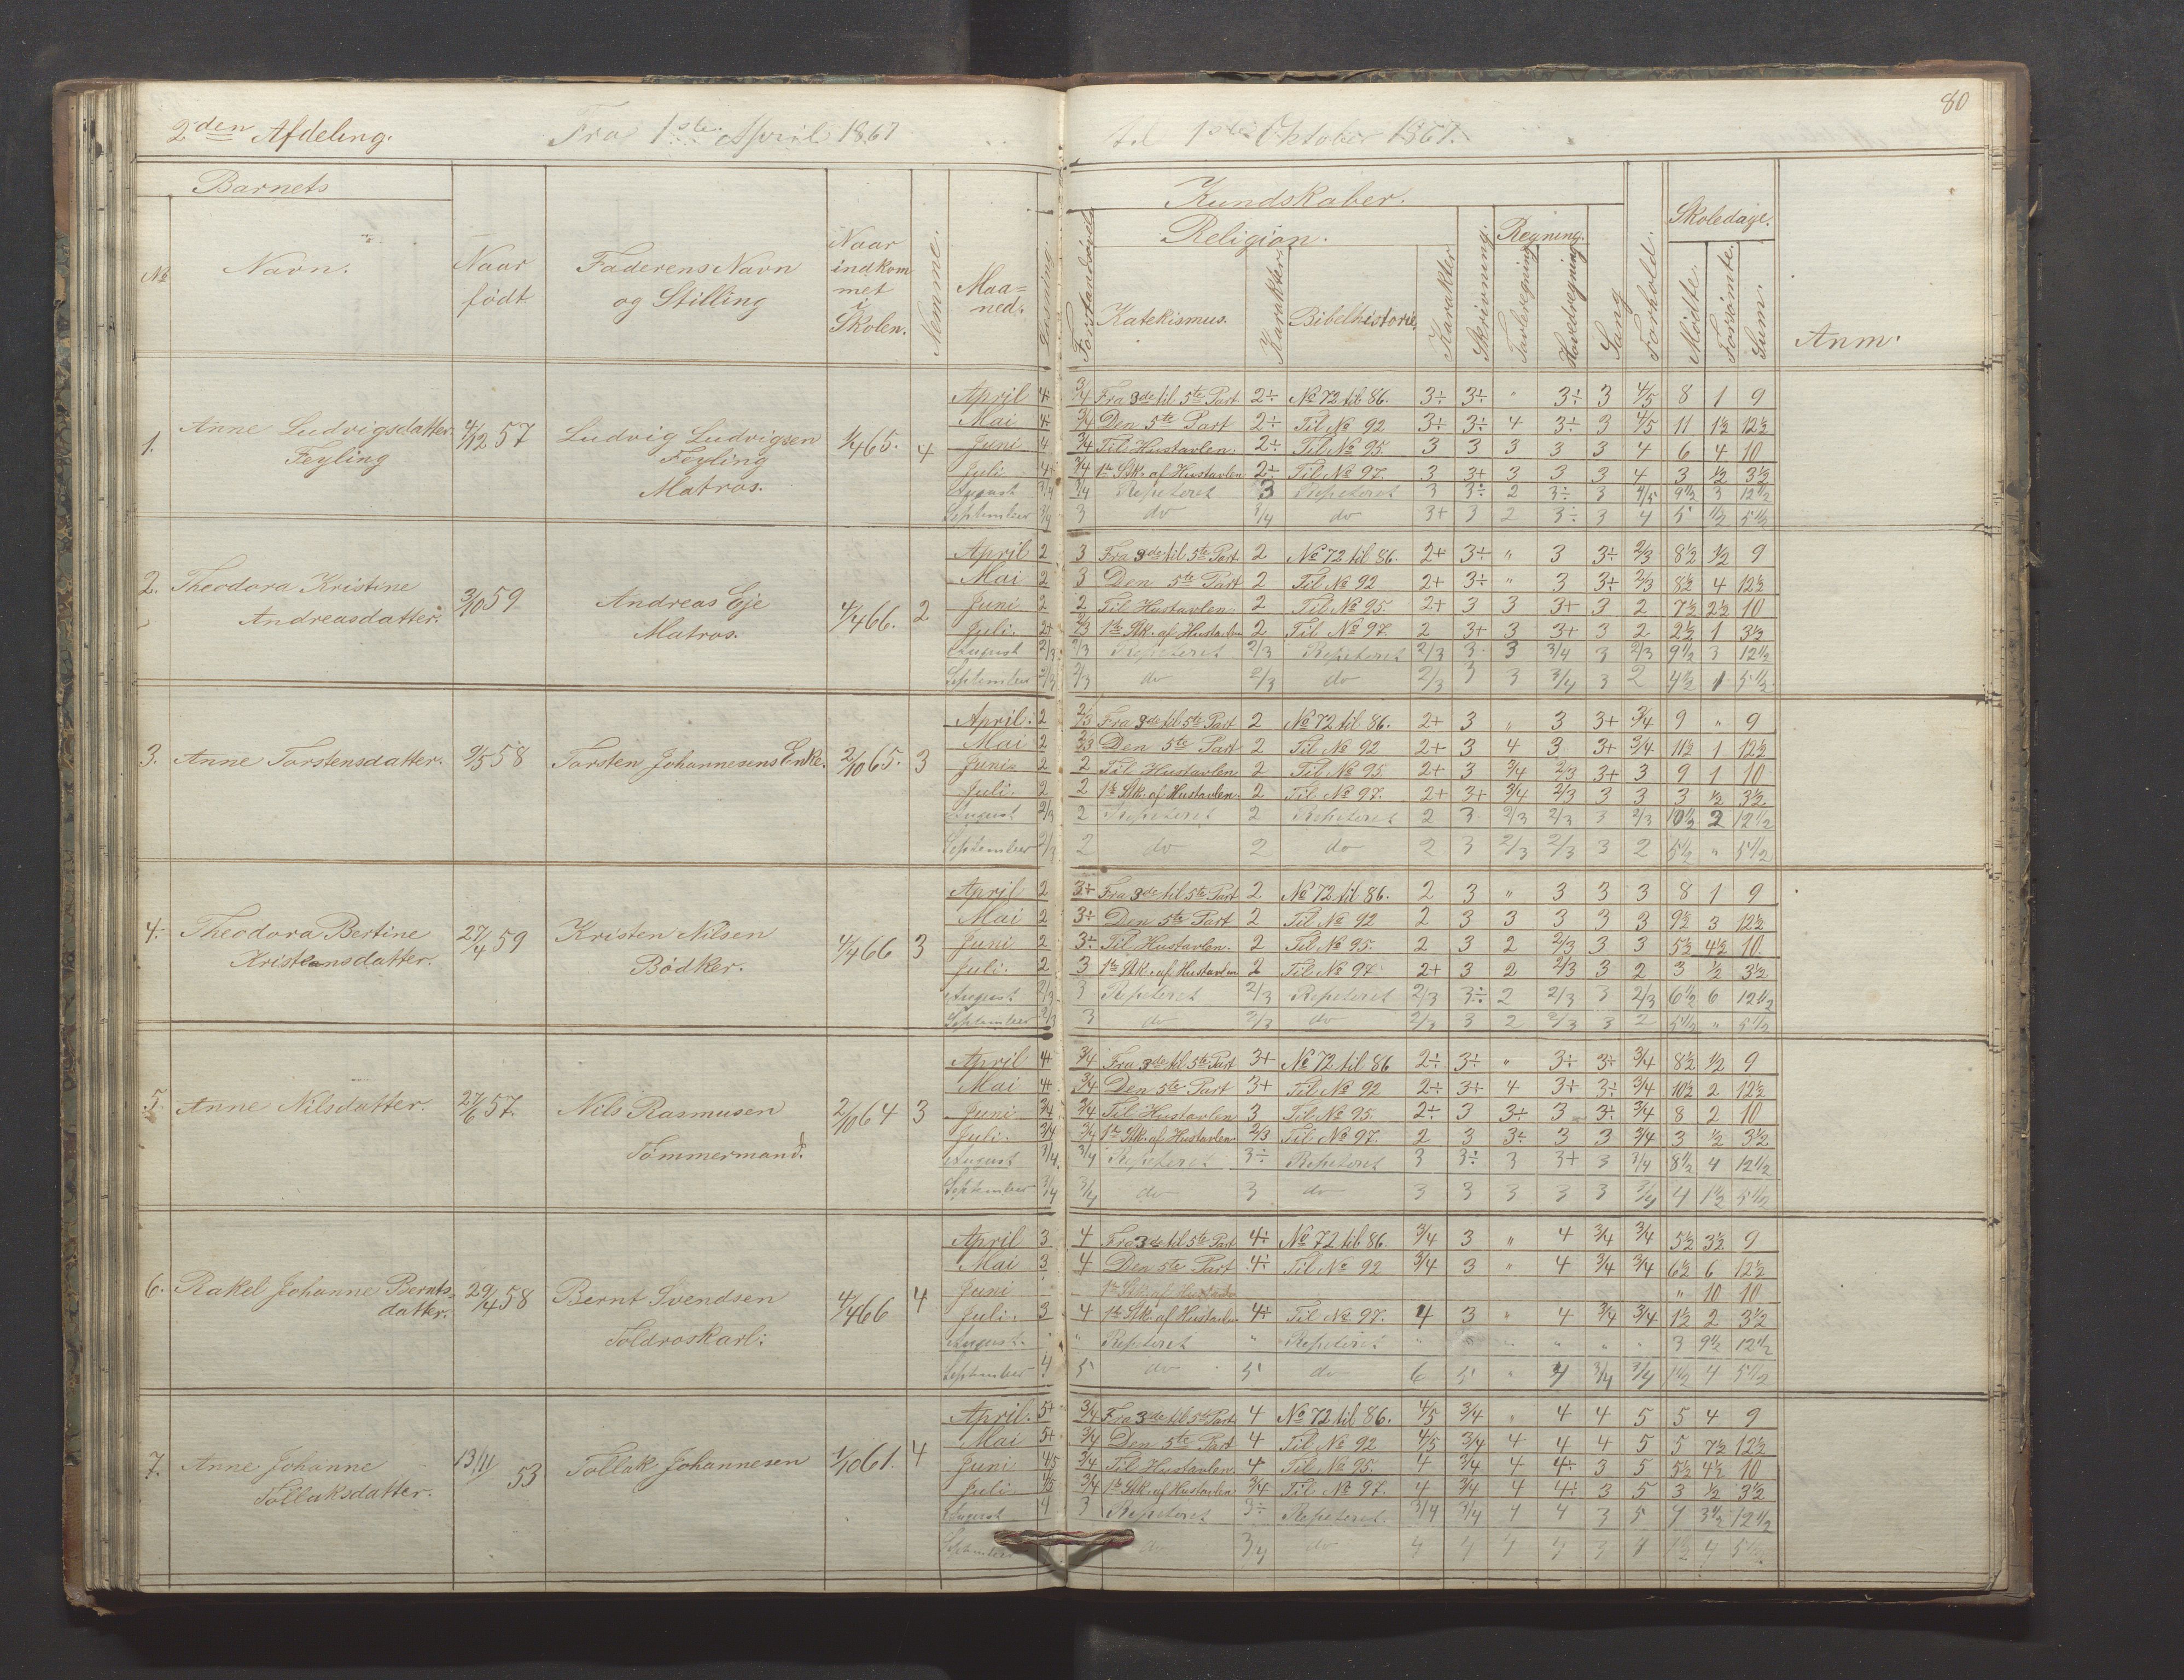 80
2den Afdeling. Fra 1ste April 1867 til 1ste Oktober 1867.
Barnets Kundskaber. Skoledage.
Religion. Regning.
No Navn. Naar født Faderens Navn og Stilling Naar indkommet i Skolen. Nemme. Maaned. Læsning. Forstandsøvelse Katekismus. Karakter Bibelhistorie, Karakter Skrivning. Tavleregning Hovedregning Sang Forhold. Mødte. Forsømte. Sum. Anm.
1. Anne Ludvigsdatter Feyling 4/12 57 Ludvig Ludvigsen Feyling Matros. 1/4 65. 4
April 4÷ 3/4 Fra 3de til 5te Part 2÷ No 72 til 86. 3÷ 3÷ " 3÷ 3 4/5 8 1 9
Mai 4÷ 3/4 Den 5te Part 2÷ Til No 92 3÷ 3÷ 4 3÷ 3 4/5 11 1½ 12½
Juni 4 3/4 Til Hustavlen. 2÷ Til No 95. 3 3 3 3 3 4 6 4 10
Juli 4+ 3/4 1te Stk. af Hustavlen 2÷ Til No 97. 3 3+ 3 3 3 4 3 ½ 3½
August 3/4 3/4 Repeteret 3 Repeteret 3 3÷ 2 3÷ 3 4/5 9½ 3 12½
September 3/4 3 do 3/4 do 3+ 3 2 3÷ 3 4 5 ½ 5½
2. Theodora Kristine Andreasdatter. 3/10 59 Andreas Eje Matros. 4/4 66. 2
April 2 3 Fra 3de til 5te Part 2 No 72 til 86. 2+ 3÷ " 3 3÷ 2/3 8½ ½ 9
Mai 2 3 Den 5te Part 2 Til No 92 2+ 3÷ " 3 3÷ 2/3 8½ 4 12½
Juni 2 2 Til Hustavlen 2 Til No 95. 2+ 3 3 3+ 3 2 7½ 2½ 10
Juli. 2+ 2/3 1te Stk. af Hustavlen 2 Til No 97. 2 3+ 3 3+ 3 2 2½ 1 3½
August 2/3 2/3 Repeteret 2/3 Repeteret 2/3 3 3 3/4 3 2/3 9½ 3 12½
September 2/3 2/3 do 2/3 do 2/3 3 3 3/4 3 2 4½ 1 5½
3. Anne Torstensdatter. 9/5 58 Torsten Johannesens Enke. 2/10 65. 3
April. 2 2/3 Fra 3de til 5te Part 2 No 72 til 86. 2+ 3 " 3 3+ 3/4 9 " 9
Mai 2 2/3 Den 5te Part 2 Til No 92 2+ 3 4 3 3+ 3/4 11½ 1 12½
Juni 2 2 Til Hustavlen 2 Til No 95 2+ 3 3/4 2/3 3+ 3 9 1 10
Juli. 2 2 1te Stk. af Hustavlen. 2 Til No 97. 2+ 3+ 3/4 2/3 3 3 3 ½ 3½
August 2/3 2 Repeteret 2 Repeteret 2 3 2/3 2/3 3 2/3 10½ 2 12½
September 2/3 2 do 2 do 2 3 2/3 2/3 3 2 5½ " 5½
4. Theodora Bertine Kristensdatter. 27/4 59 Kristen Nilsen Bødker. 4/4 66 3
April 2 3+ Fra 3de til 5te Part 2. No 72 til 86. 2 3 " 3 3 3 8 1 9
Mai 2 3÷ Den 5te Part 2 Til No 92 2 3 3 3 3 3 9½ 3 12½
Juni 2 3÷ Til Hustavlen. 2 Til No 95. 2 3 2 2/3 3 3 5½ 4½ 10
Juli. 2 3 1te Stk. af Hustavlen 2 Til No 97 2+ 3 2 2/3 3 2 3 ½ 3½
August 2/3 3 Repeteret 2/3 Repeteret 2/3 3÷ 2 2/3 3 2/3 6½ 6 12½
September 2/3 3 do 2/3 do 2/3 3 2 2/3 3 2 5½ " 5½
5. Anne Nilsdatter. 27/6 57. Nils Rasmusen Tømmermand. 2/10 64 3
April 4+ 3/4 Fra 3de til 5te Part 3+ No 72 til 86 2÷ 3÷ " 3÷ 3÷ 3/4 8½ ½ 9
Mai 4+ 3/4 Den 5te Part 3+ Til No 92 2÷ 3+ 4 3+ 3÷ 3/4 10½ 2 12½
Juni 3/4 3/4 Til Hustavlen 3 Til No 95. 2÷ 3 3÷ 3 3÷ 3/4 8 2 10
Juli. 3/4 3/4 1te Stk. af Hustavlen 2/3 Til No 97. 2 3 3÷ 3 3 3/4 3 ½ 3½
August 3/4 3/4 Repeteret 3÷ Repeteret 3 3÷ 3 3+ 3 3/4 8½ 4 12½
September 3/4 3/4 do 3 do 3 3 3 3 3 3/4 4 1½ 5½
6. Rakel Johanne Berntsdatter. 29/4 58 Bernt Svendsen Toldroskarl. 4/4 66 4
April 3 4 Fra 3de til 5te Part 4÷ No 72 til 86. 3/4 3 " 4 3/4 3/4 5½ 3½ 9
Mai 3 4 Den 5te Part 4÷ Til No 92 3/4 3 " 4 3/4 3/4 6½ 6 12½
Juni 1te Stk. af " 10 10
Juli. 3 4 1te Stk. af Hustavlen 4÷ Til No 97. 4 3 " 4 3/4 3/4 1½ 2 3½
August. " Repeteret " Repeteret " " " " " " 3 9½ 12½
September 4 5 do 5 do 6 5 " 4 3/4 3/4 1½ 4 5½
7. Anne Johanne Tollaksdatter. 13/11 53 Tollak Johannesen 1/10 61. 4
April. 5+ 3/4 Fra 3de til 5te Part 4 No 72 til 86. 4/5 3/4 " 4 4 5 5 4 9
Mai 5+ 3/4 Den 5te Part 4 Til No 92 4/5 3/4 4 4 4 5 5 7½ 12½
Juni 4/5 3/4 Til Hustavlen 4 Til No 95. 4 3/4 4 4÷ 3 5 5½ 4½ 10
Juli. 4/5 3/4 1te Stk. af Hustavlen 3/4 Til No 97. 4 3/4 4 4÷ 3 5 3 ½ 3½
August 4 3 Repeteret 3÷ Repeteret. 3/4 3/4 4 4 3 5 9 3½ 12½
September do 3/4 do 4 4 4 4 3 4 1½ 4 5½